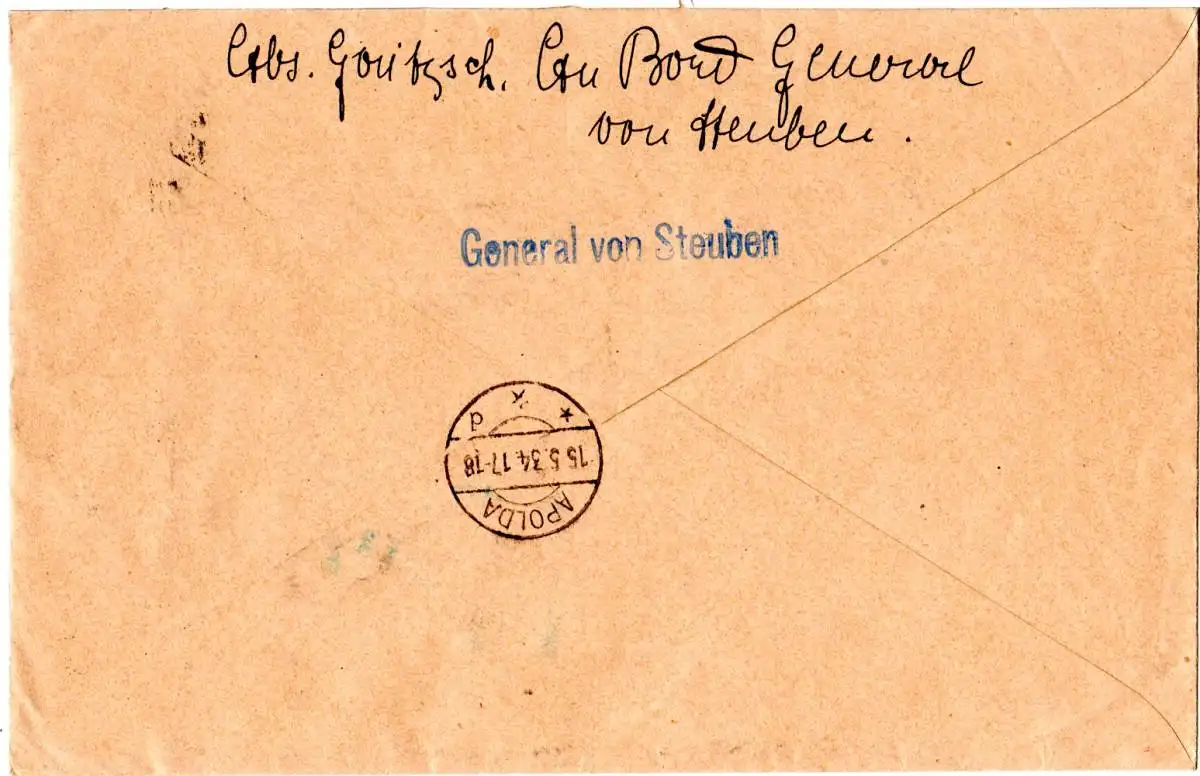 Abs. Goritzsch. An Bord General
von Steuben.
General von Steuben
d
15.5.34.17-18
APOLDA